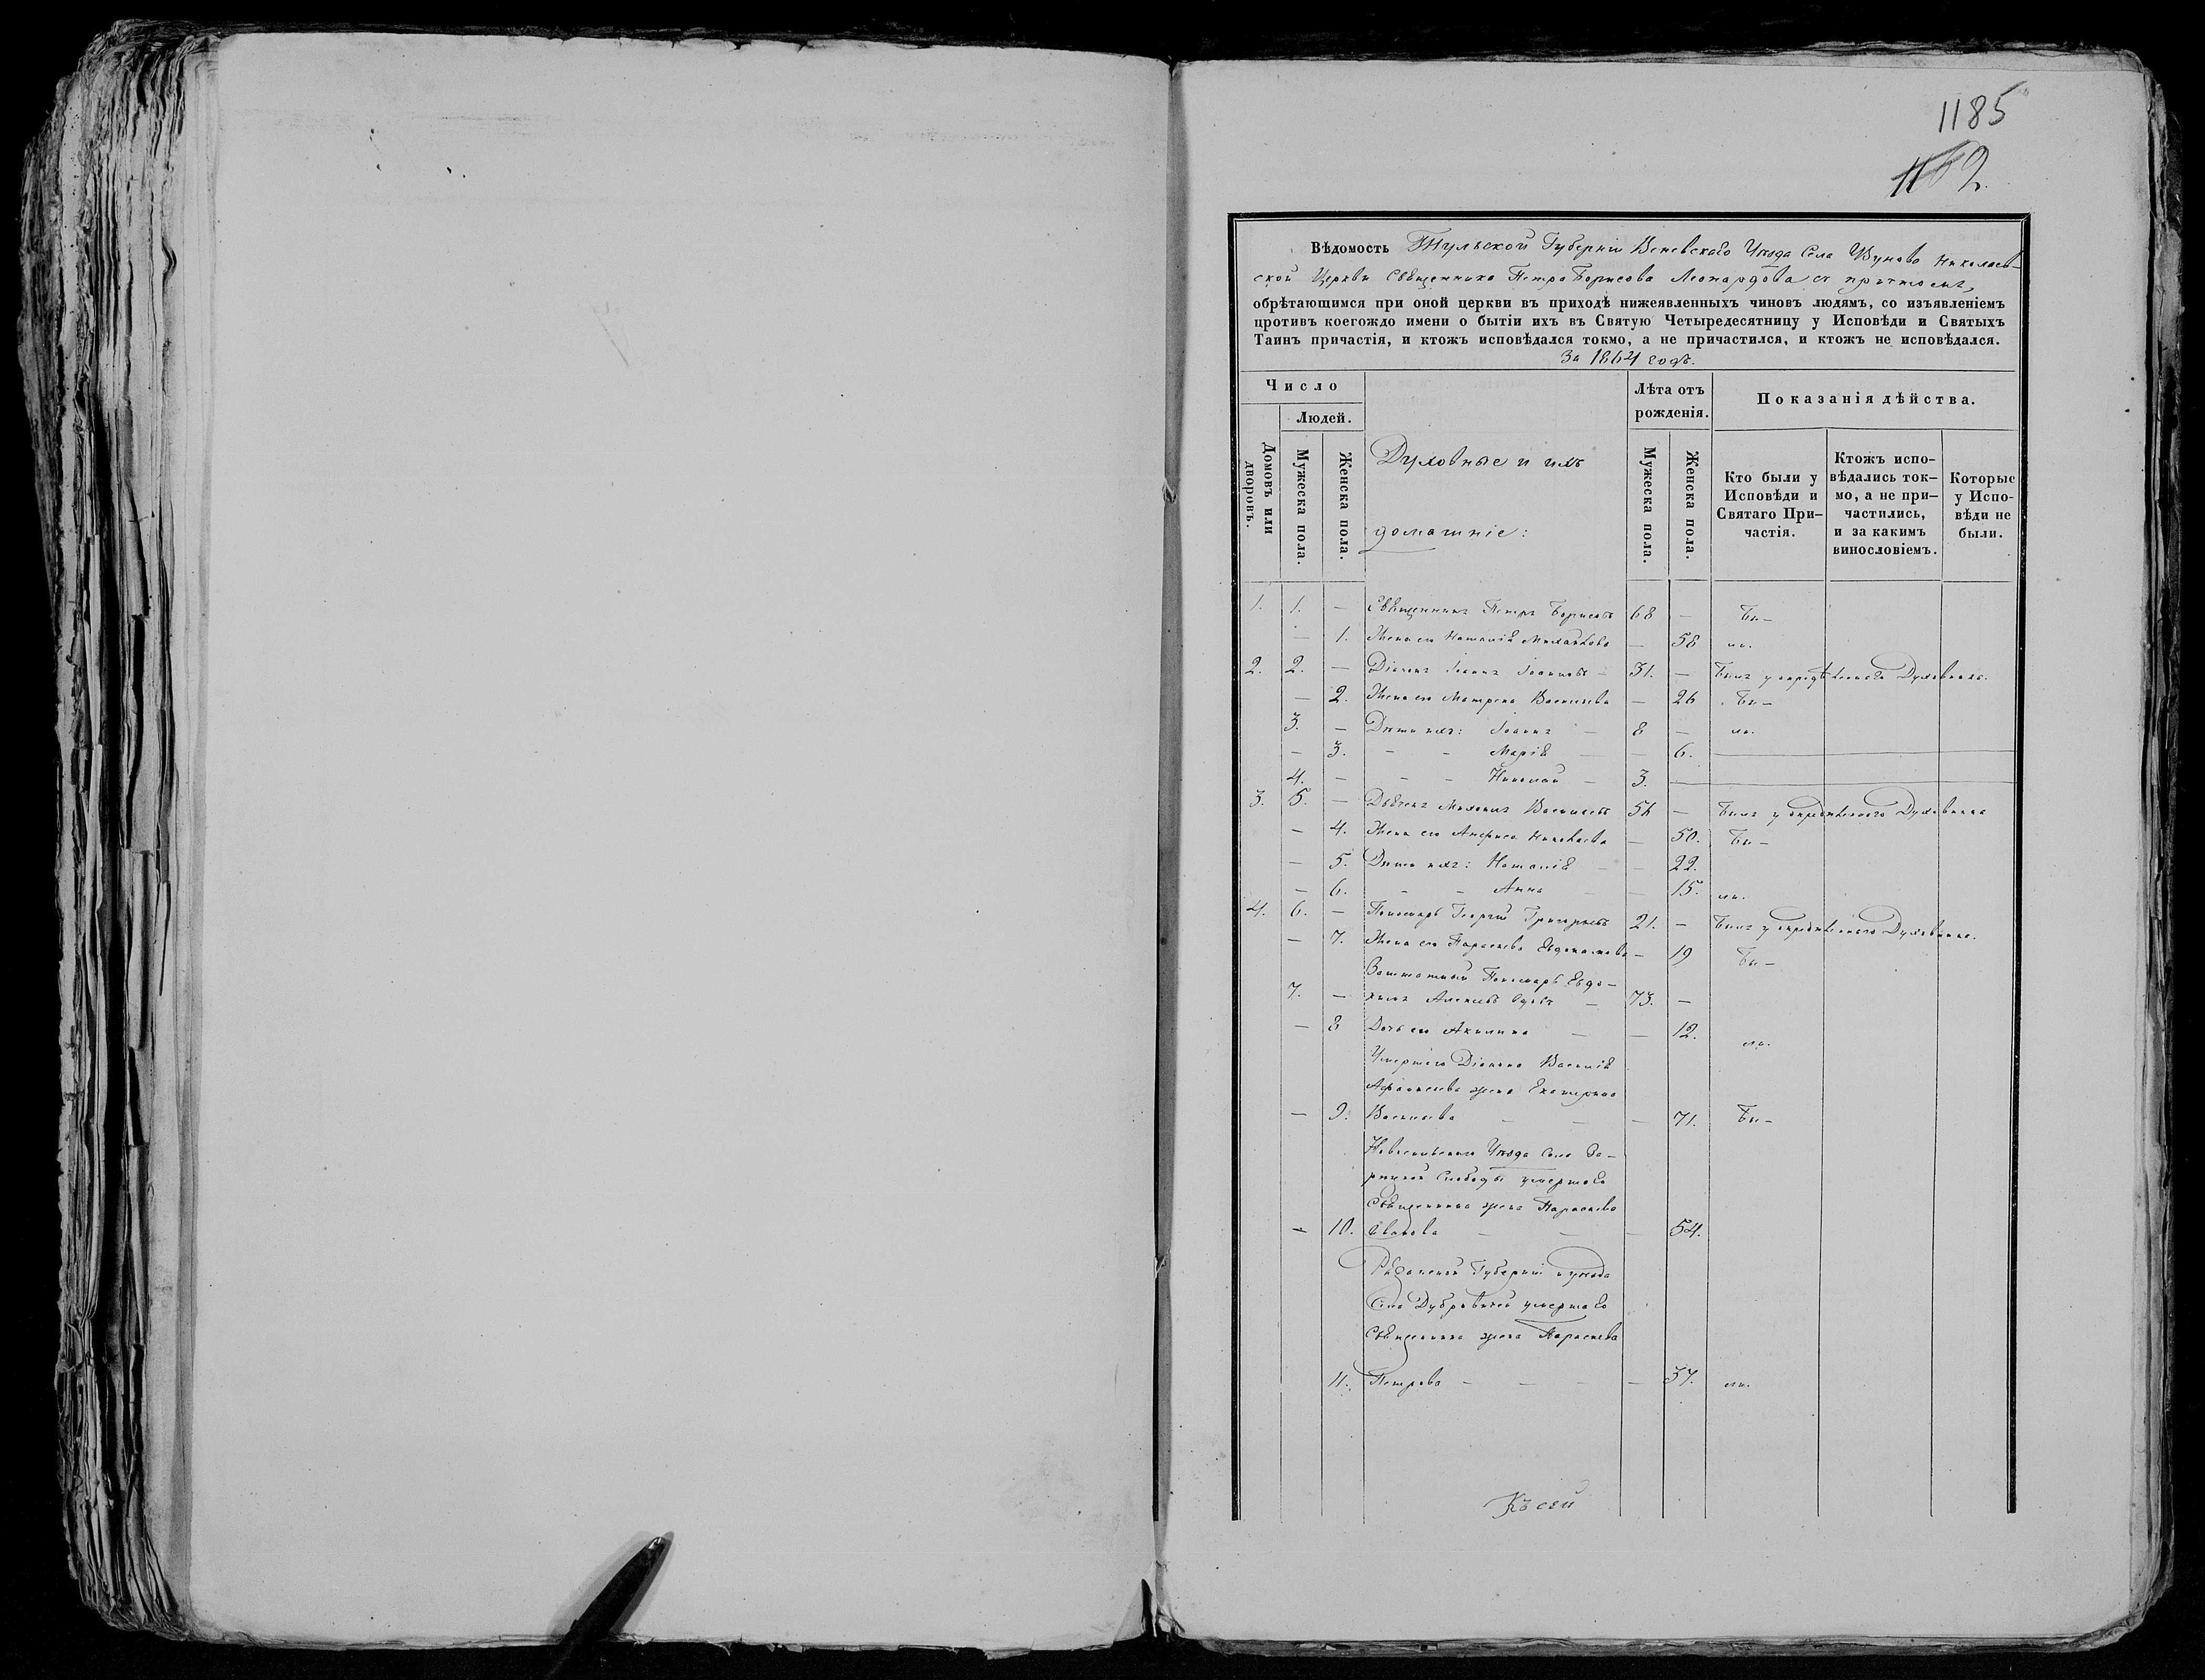 1185
1162.
Вѣдомость Тульской Губерніи Веневскаго Уѣзда Села Узуново Николаев-
ской Церкви Священника Петра Борисова Леонардова съ причтомъ,
обрѣтающимся при оной церкви въ приходѣ нижеявленныхъ чиновъ людямъ, со изъявленіемъ
противъ коегождо имени о бытіи ихъ въ Святую Четыредесятницу у Исповѣди и Святыхъ
Таинъ причастія, и ктожъ исповѣдался токмо, а не причастился, и ктожъ не исповѣдался.
За 1864 годъ.
Число
Людей.
Домовъ или дворовъ.
Мужеска пола.
Женска пола.
Духовные и ихъ
домашніе:
Лѣта отъ
рожденія.
Мужеска пола.
Женска пола.
Показанія дѣйства.
Кто были у
Исповѣди и
Святаго При-
частія.
Ктожъ испо-
вѣдались ток-
мо, а не при-
частились,
и за какимъ
винословіемъ.
Которые
у Испо-
вѣди не
были.
1. 1. — Священникъ Петръ Борисовъ 68 — Бы-
— 1. Жена его Наталія Михайлова — 58 ли.
2. 2. — Діаконъ Іоаннъ Іоанновъ — 31. — Былъ у окружнаго Духовника.
— 2. Жена его Матрена Васильева — 26 Бы-
3. — Дѣти ихъ: Іоаннъ — 8 — ли.
— 3. - - Марія — — 6. —
4. — - - Николай — 3. —
3. 5. — Дьячекъ Михаилъ Васильевъ 56 — Былъ у окружнаго Духовника
— 4. Жена его Анфиса Николаева — 50. Бы-
— 5. Дѣти ихъ: Наталія — — 22.
— 6. - - Анна — — 15. ли.
4. 6. — Пономарь Георгій Григорьевъ 21. — Былъ у окружнаго Духовника.
— 7. Жена его Параскева Евдокимова — 19 Бы-
Заштатный Пономарь Евдо-
7. — кимъ Алексѣевъ вдовъ — 73. —
— 8 Дочь его Акилина — — 12. ли.
Умершаго Діакона Василія
Афанасьева жена Екатерина
— 9. Васильева — — — 71. Бы-
Новосильскаго Уѣзда Села За-
рѣцкой Слободы умершаго
Священника жена Параскева
— 10. Іванова — — — 54.
Рязанской Губерніи и уѣзда
Села Дубровичей умершаго
Священника жена Параскева
11. Петрова — — — — 37. ли.
Къ сей